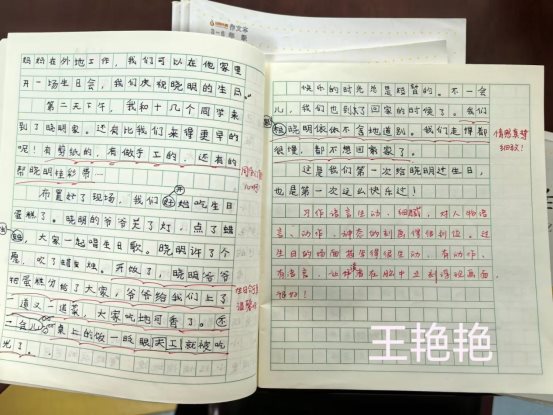 作文本
妈妈在外地工作，我们可以在他家里
开一场生日会，我们庆祝晓明的生日。
第二天下午，我和十几个同学来
到了晓明家。还有比我们来得更早的
呢！有剪纸的，有做手工的，还有的
帮晓明挂彩带…
布置好了现场，我们开始吃生日
蛋糕了。晓明的爷爷关了灯，点了蜡
烛，大家一起唱生日歌。晓明许了个
愿，吹了蜡烛。开饭了，晓明爷爷
把蛋糕分给了大家，爷爷给我们上了
一道又一道菜，大家吃地可香了。不
一会儿，桌上的饭一眨眼天工就被吃
光了。
生日会好
温馨
快乐的时光总是短暂的。不一会
儿，我们也到了回家的时候了。我们
和晓明依依不舍地道别。我们走得都
很慢，都不想回家了。
这是我们第一次给晓明过生日，
也是第一次这么快乐过！
情感真挚
细致！
习作语言生动、细腻，对人物语
言、动作、神态的刻画得很到位。过
生日的场面描写得很生动，有动作、
有语言，让读者在脑中立刻浮现画面，
很好！
王艳艳